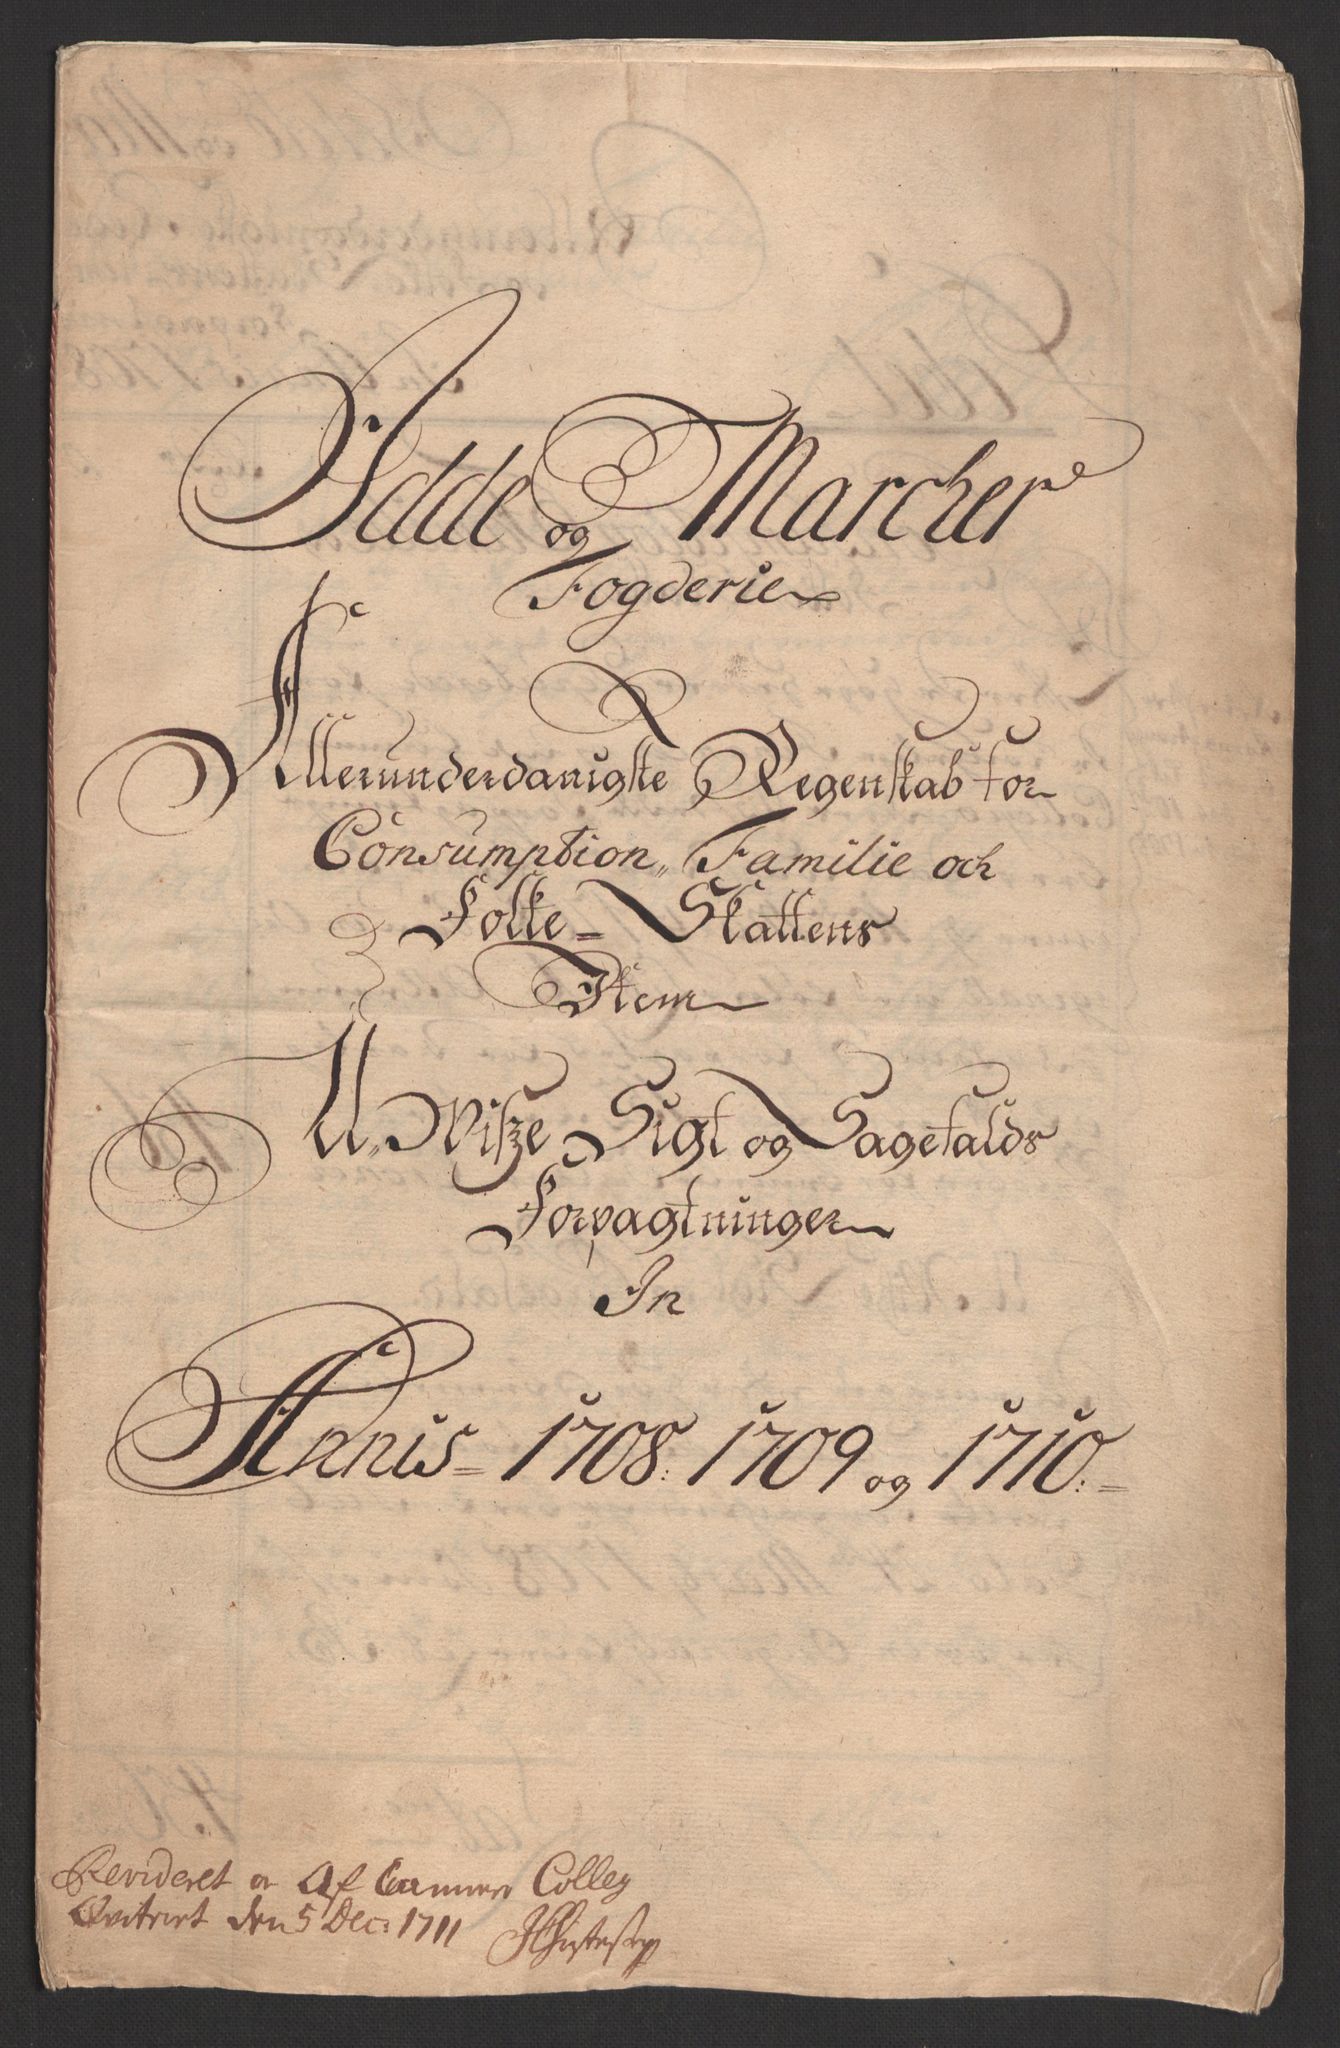 Idde og Marcher
Fogderie
Allerunderdanigste Regenskab for
Consumption,, Familie och
Folke= Skattens
Item
U,, Viſze Sigt og Sagefalds
Forpagtninger
In
Annis= 1708: 1709 og 1710:=
Revideret Af Cammer Colleg
Qvitert den 5 Dec: 1711